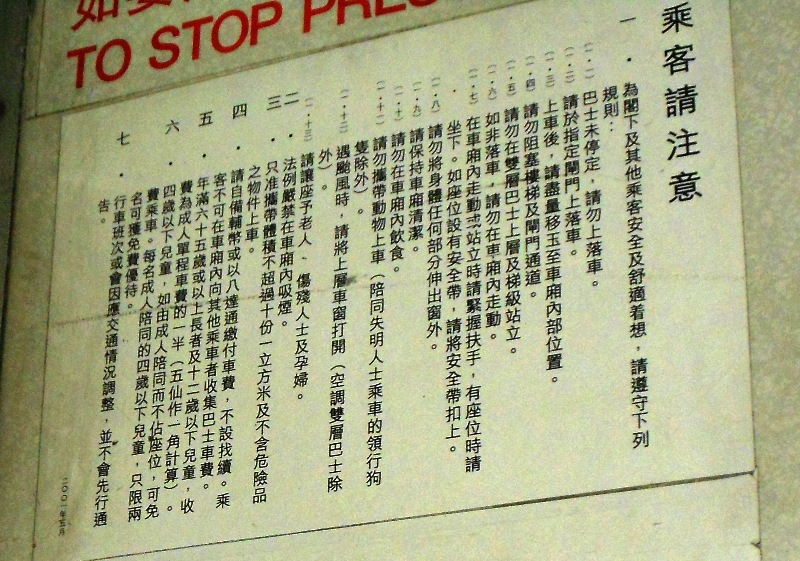 TO STOP
乘客請注意
一 . 為閣下及其他乘客安全及舒適着想，請遵守下列
規則：
(一.一) 巴士未停定，請勿上落車。
(一.二) 請於指定閘門上落車。
(一.三) 上車後，請盡量移玉至車廂內部位置。
(一.四) 請勿阻塞樓梯及閘門通道。
(一.五) 請勿在雙層巴士上層及梯級站立。
(一.六) 如非落車，請勿在車廂內走動。
(一.七) 在車廂內走動或站立時請緊握扶手，有座位時請
坐下。如座位設有安全帶，請將安全帶扣上。
(一.八) 請勿將身體任何部分伸出窗外。
(一.九) 請保持車廂清潔。
(一.十) 請勿在車廂內飲食。
(一.十一) 請勿攜帶動物上車（陪同失明人士乘車的領行狗
隻除外）。
(一.十二) 遇颱風時，請將上層車窗打開（空調雙層巴士除
外）。
(一.十三) 請讓座予老人、傷殘人士及孕婦。
二 . 法例嚴禁在車廂內吸煙。
三 . 只准攜帶體積不超過十份一立方米及不含危險品
之物件上車。
四 . 請自備輔幣或以八達通繳付車費，不設找續。乘
客不可在車廂內向其他乘車者收集巴士車費。
五 . 年滿六十五歲或以上長者及十二歲以下兒童，收
費為成人單程車費的一半（五仙作一角計算）。
六 . 四歲以下兒童，如由成人陪同而不佔座位，可免
費乘車。每名成人陪同的四歲以下兒童，只限兩
名可獲免費優待。
七 . 行車班次或會因應交通情況調整，並不會先行通
告。
二〇〇一年五月